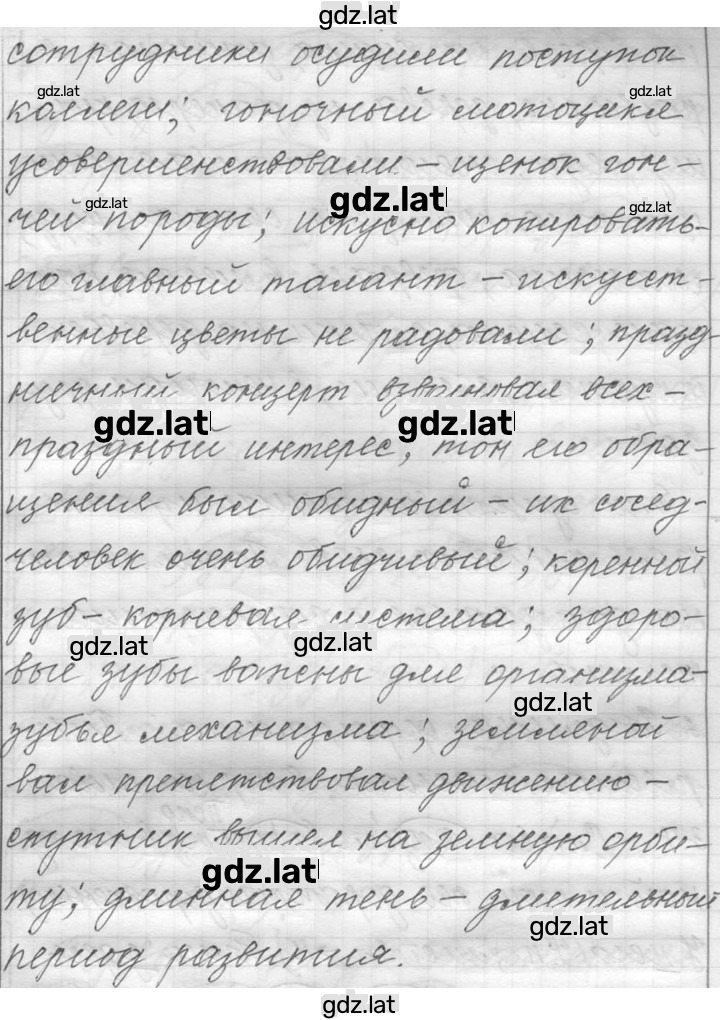 gdz.lat
сотрудники осудили поступок
gdz.lat gdz.lat
коллеги; гоночный мотоцикл
усовершенствовали – щенок гон-
gdz.lat gdz.lat gdz.lat
чей породы; искусно копировать-
его главный талант – искусст-
венные цветы не радовали; празд-
ничный концерт взволновал всех –
gdz.lat gdz.lat
праздный интерес, тон его обра-
щения был обидный – их сосед-
человек очень обидчивый; коренной
зуб – корневая система; здоро-
gdz.lat gdz.lat
вые зубы важны для организма-
gdz.lat
зубья механизма; земляной
вал препятствовал движению –
спутник вышел на земную орби-
gdz.lat
ту; длинная тень – длительный
gdz.lat
период развития.
gdz.lat